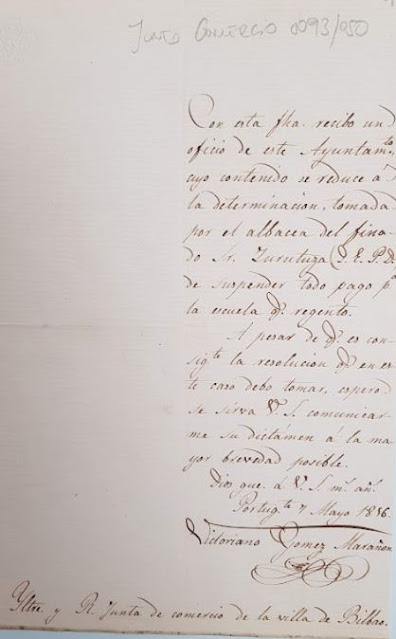 Junta Comercio 0093/050
Con esta fha. recibo un
oficio de este Ayuntamto.
cuyo contenido se reduce á
la determinacion, tomada
por el albacea del fina-
do Sr. Zurutuza (Q. E. P. D.)
de suspender todo pago pa.
la escuela q. regento.
A pesar de q. es con-
sigte. la resolucion q. en es-
te caso debo tomar, espero
se sirva V. S. comunicar-
me su dictámen á la ma-
yor brevedad posible.
Dios gue. á V. S. ms. añs.
Portugte. 7 Mayo 1856.
Victoriano Gomez Marañon
Yltre. y R. Junta de comercio de la villa de Bilbao.